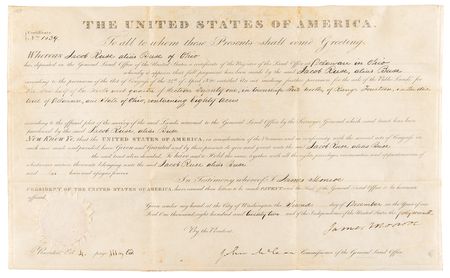 THE UNITED STATES OF AMERICA.
Certificate
No. 1034
To all to whom these Presents shall come, Greeting.
Whereas Jacob Ruse alias Buse of Ohio
has deposited in the General Land Office of the United States a certificate of the Register of the Land Office at Delaware in Ohio
whereby it appears that full payment has been made by the said Jacob Ruse, alias Buse
according to the provisions of the Act of Congress of the 24th of April 1820, entitled An act making further provision for the sale of the Public Lands for
half of the quarter of Section Twenty one, in Township of Range Fourteen, in the
of Delaware, and State of Ohio, containing Eighty acres
according to the official plat of the survey of the said Lands returned to the General Land Office by the Surveyor General which said tract has been
purchased by the said Jacob Ruse, alias Buse
Now Know Ye, that the UNITED STATES OF AMERICA, in consideration of the Premises and in conformity with the several acts of Congress in
such case made and provided, have Given and Granted and by these presents do give and grant unto the said Jacob Ruse alias Buse
the said tract above described. to have and to Hold the same, together with all the rights, privileges, immunities and appurtenances of
whatsoever nature thereunto belonging unto the said Jacob Ruse, alias Buse
and his heirs and assigns forever.
In Testimony whereof I James Monroe
PRESIDENT OF THE UNITED STATES OF AMERICA, have caused these Letters to be made PATENT and the Seal of the General Land Office to be hereunto
affixed.
Given under my hand at the City of Washington the Second day of December in the Year of our
Lord One thousand eight hundred and twenty two and of the Independence of the United States the forty seventh
By the President James Monroe
Recorded Vol. 4 page
John McLean Commissioner of the General Land Office.